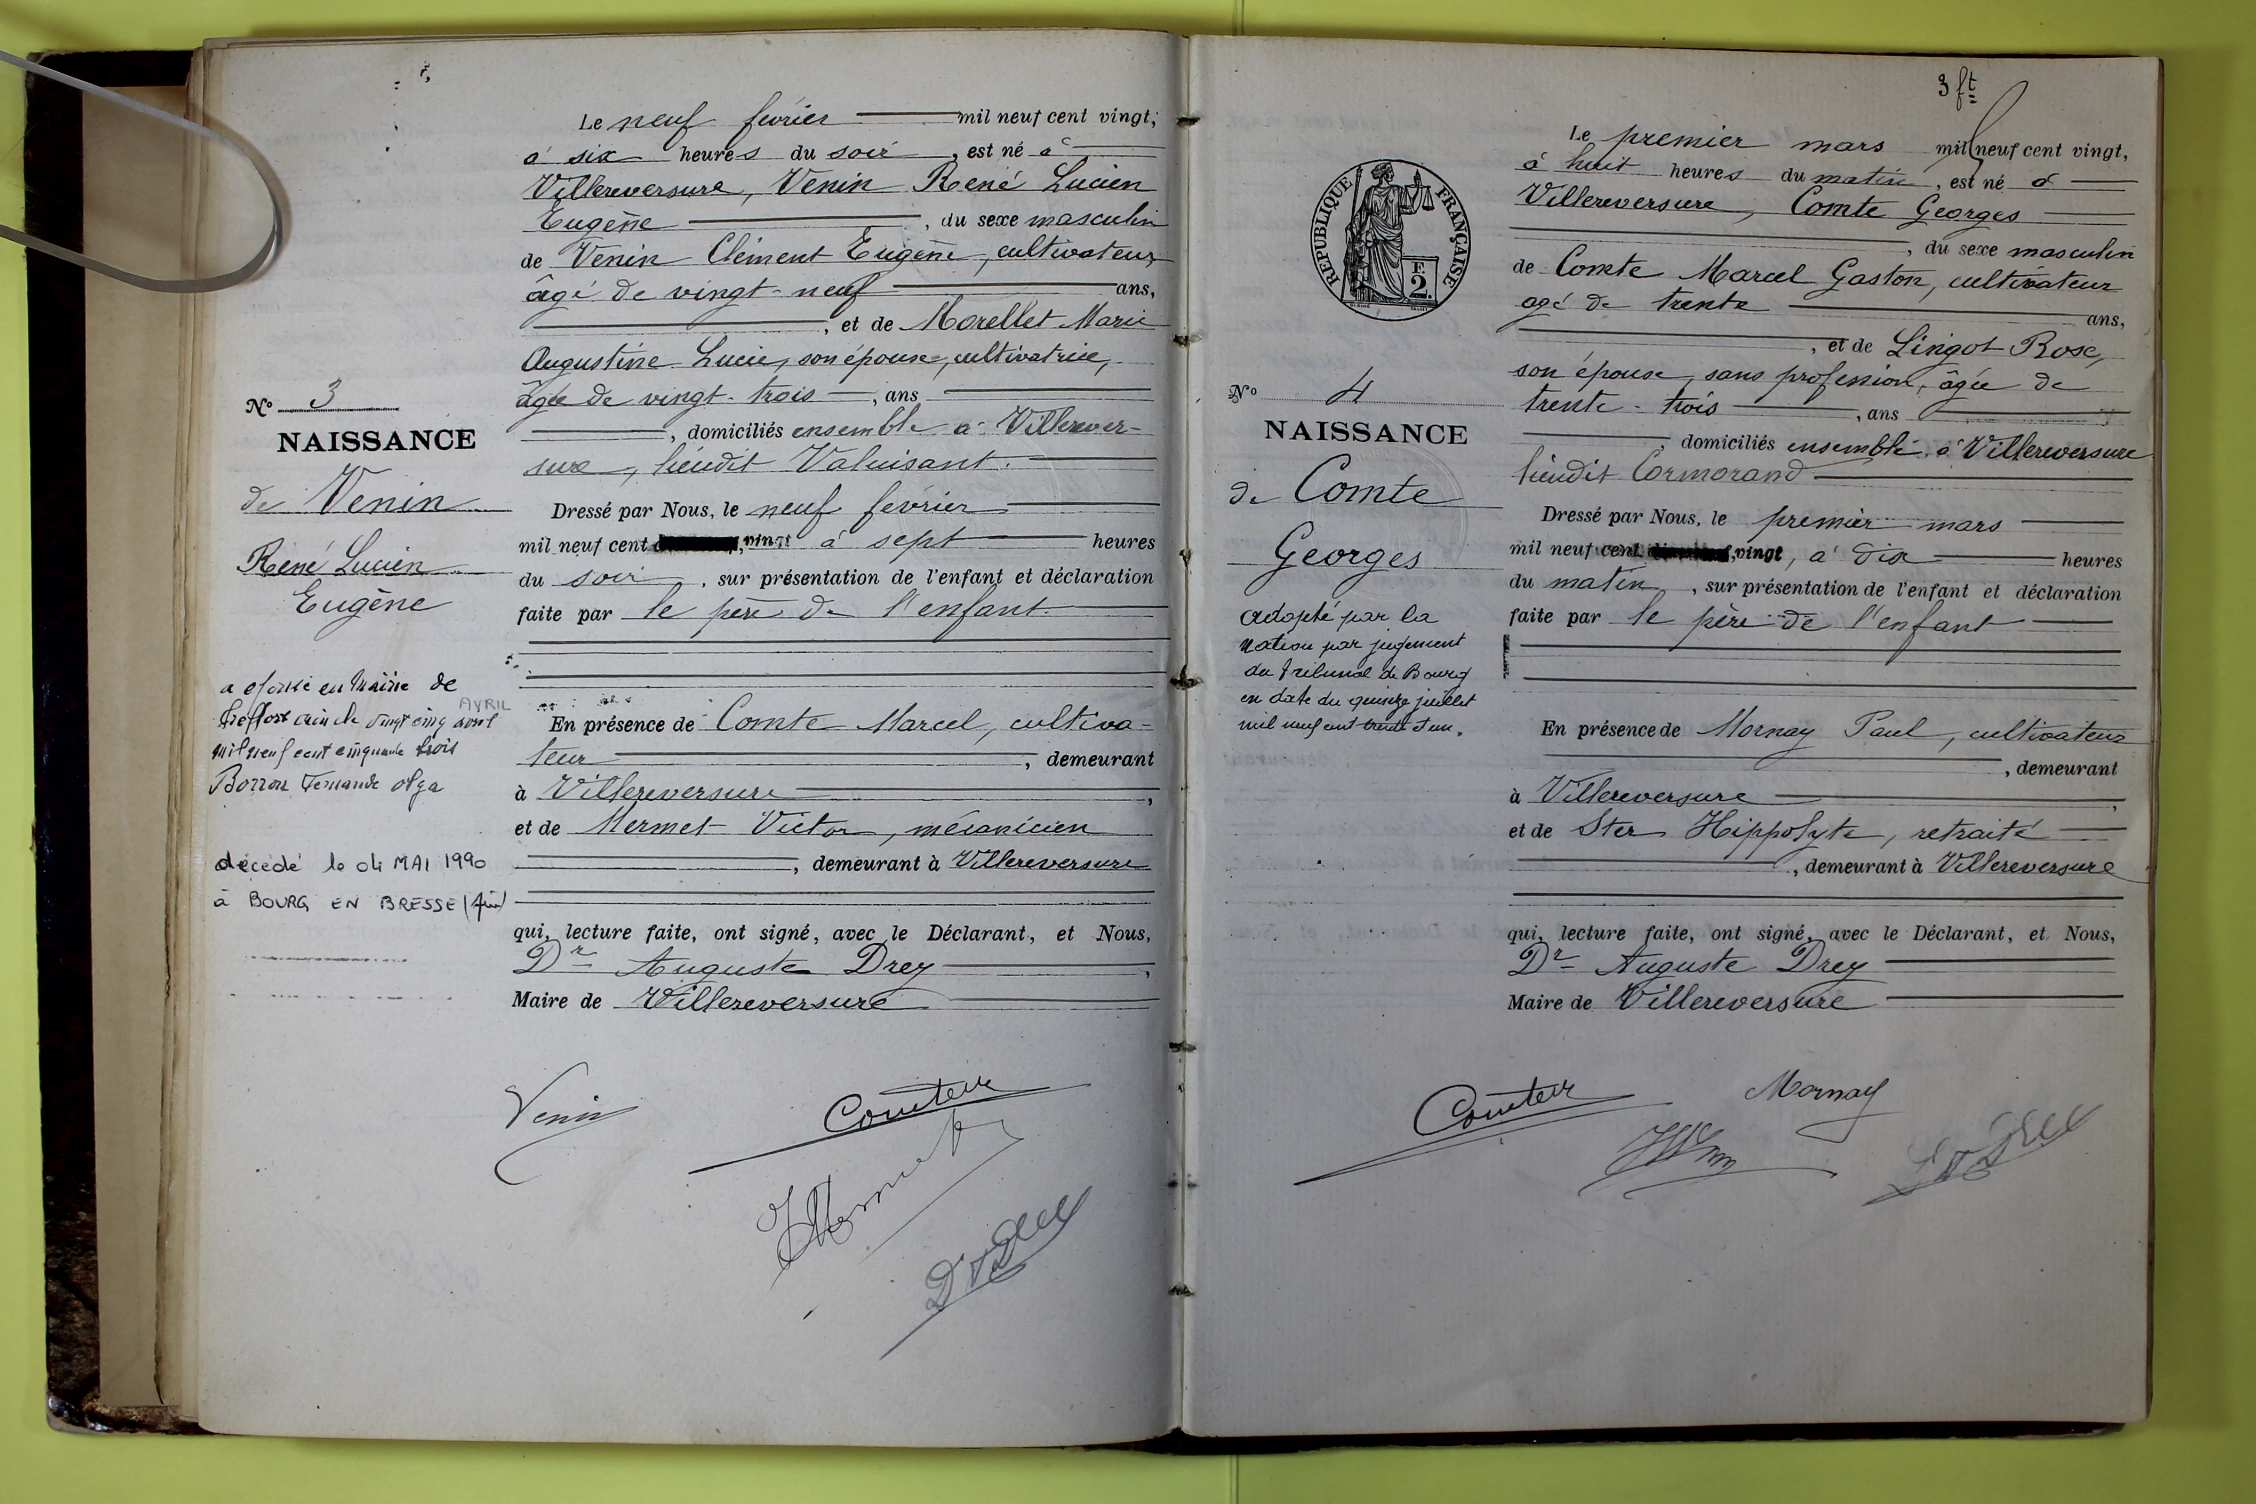 Le neuf février mil neuf cent vingt,
à six heures du soir, est né à
Villereversure, Venin René Lucien
Eugène, du sexe masculin
de Venin Clément Eugène, cultivateur,
âgé de vingt-neuf ans,
, et de Morellet Marie
Augustine Lucie, son épouse, cultivatrice,
âgée de vingt-trois, ans
, domiciliés ensemble à Villerever-
sure, lieudit Valuisant.
Dressé par Nous, le neuf février
mil neuf cent, vingt à sept heures
du soir, sur présentation de l'enfant et déclaration
faite par le père de l'enfant.
En présence de Comte Marcel, cultiva-
teur, demeurant
à Villereversure,
et de Mermet Victor, mécanicien
, demeurant à Villereversure
qui, lecture faite, ont signé, avec le Déclarant, et Nous,
Dr Auguste Drey,
Maire de Villereversure
Venin
Comte
Mermet
Dr Drey
No 3
NAISSANCE
de Venin
René Lucien
Eugène
a épousé en Mairie de
AVRIL
Treffort Ain le vingt cinq avril
mil neuf cent cinquante trois
Borron Fernande Olga
décédé le 04 MAI 1990
à BOURG EN BRESSE (Ain)
3 ft
RÉPUBLIQUE FRANÇAISE
F.
2.
Le premier mars mil neuf cent vingt,
à huit heures du matin, est né à
Villereversure, Comte Georges
, du sexe masculin
de Comte Marcel Gaston, cultivateur
agé de trente ans,
, et de Lingot Rose,
son épouse, sans profession, âgée de
trente-trois, ans
, domiciliés ensemble à Villereversure
lieudit Cormorand
Dressé par Nous, le premier mars
mil neuf cent, vingt, à dix heures
du matin, sur présentation de l'enfant et déclaration
faite par le père de l'enfant
En présence de Mornay Paul, cultivateur
, demeurant
à Villereversure,
et de Ster Hippolyte, retraité
, demeurant à Villereversure
qui, lecture faite, ont signé, avec le Déclarant, et Nous,
Dr Auguste Drey
Maire de Villereversure
Comte
Mornay
Dr Drey
No 4
NAISSANCE
de Comte
Georges
adopté par la
nation par jugement
du tribunal de Bourg
en date du quinze juillet
mil neuf cent trente et un.